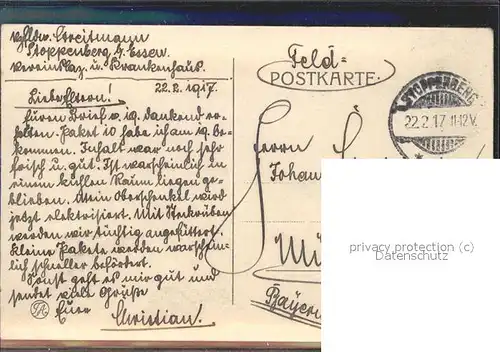 Feld-
POSTKARTE.
Stoppenberg b. Essen.
Vereinslaz. u. Krankenhaus.
22.2.1917.
Liebe Eltern!
Euren Brief v. 19. dankend er-
halten. Paket 10 habe ich am 19. be-
kommen. Inhalt war noch sehr
frisch u. gut. Ist warscheinlich in
einem kühlen Raum liegen ge-
blieben. Mein Oberschenkel wird
jetzt elektrisiert. Mit Steckrüben
werden wir tüchtig angefüttert.
Kleine Pakete werden warschein-
lich schneller befördert.
Sonst geht es mir gut und
sendet viele Grüße
Euer
Christian.
STOPPENBERG
22.2.17. 11-12V.
Herrn
Johan
Mü
Bayern
privacy protection (c)
Datenschutz